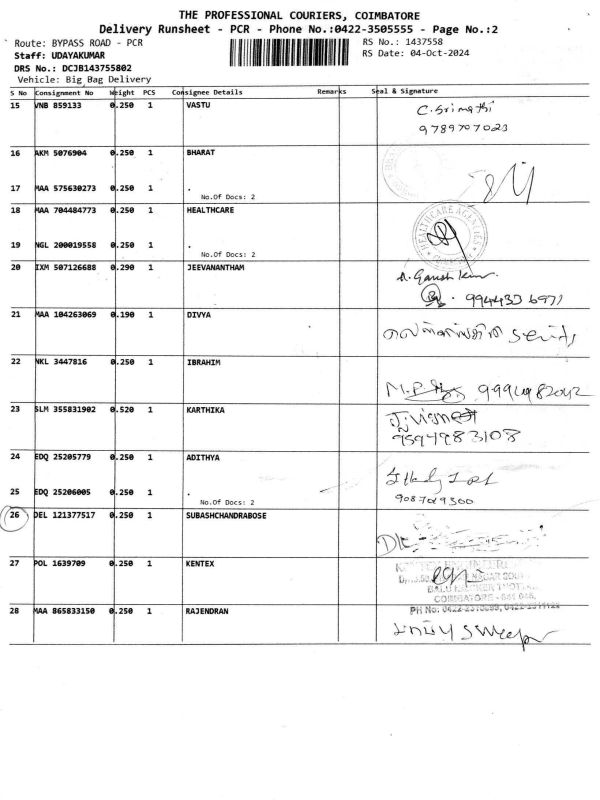 THE PROFESSIONAL COURIERS, COIMBATORE
Delivery Runsheet - PCR - Phone No.:0422-3505555 - Page No.:2
Route: BYPASS ROAD - PCR
RS No.: 1437558
Staff: UDAYAKUMAR
RS Date: 04-Oct-2024
DRS No.: DCJB143755802
Vehicle: Big Bag Delivery
S No Consignment No Weight PCS Consignee Details Remarks Seal & Signature
15 VNB 859133 0.250 1 VASTU C. Srimathi
9789707023
16 AKM 5076904 0.250 1 BHARAT
17 MAA 575630273 0.250 1 .
No.Of Docs: 2
18 MAA 704484773 0.250 1 HEALTHCARE
HEALTHCARE AGENCIES
19 NGL 200019558 0.250 1 .
No.Of Docs: 2
20 IXM 507126688 0.290 1 JEEVANANTHAM
9944336971
21 MAA 104263069 0.190 1 DIVYA
22 NKL 3447816 0.250 1 IBRAHIM
M.P. 9994982042
23 SLM 355831902 0.520 1 KARTHIKA
9594983108
24 EDQ 25205779 0.250 1 ADITHYA
25 EDQ 25206005 0.250 1 .
No.Of Docs: 2
9087019300
26 DEL 121377517 0.250 1 SUBASHCHANDRABOSE
27 POL 1639709 0.250 1 KENTEX
COIMBATORE
28 MAA 865833150 0.250 1 RAJENDRAN
PH No: 0422